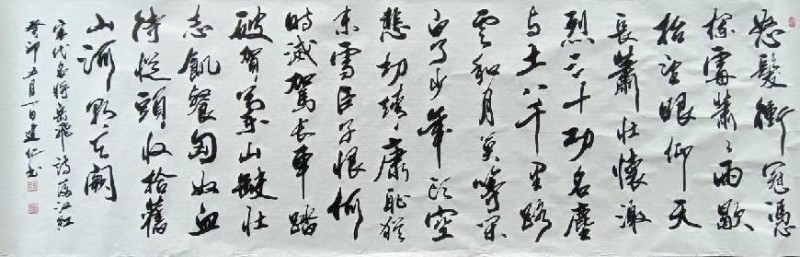 怒髮衝冠憑
欄處蕭蕭雨歇
抬望眼仰天
長蕭壯懷激
烈三十功名塵
与土八千里路
雲和月莫等閑
白了少年頭空
悲切靖康恥猶
未雪臣子恨何
時滅駕長車踏
破賀蘭山缺壯
志飢餐匈奴血
待從頭收拾舊
山河朝天闕
宋代名將岳飛詩滿江紅
癸卯五月一日建仁書